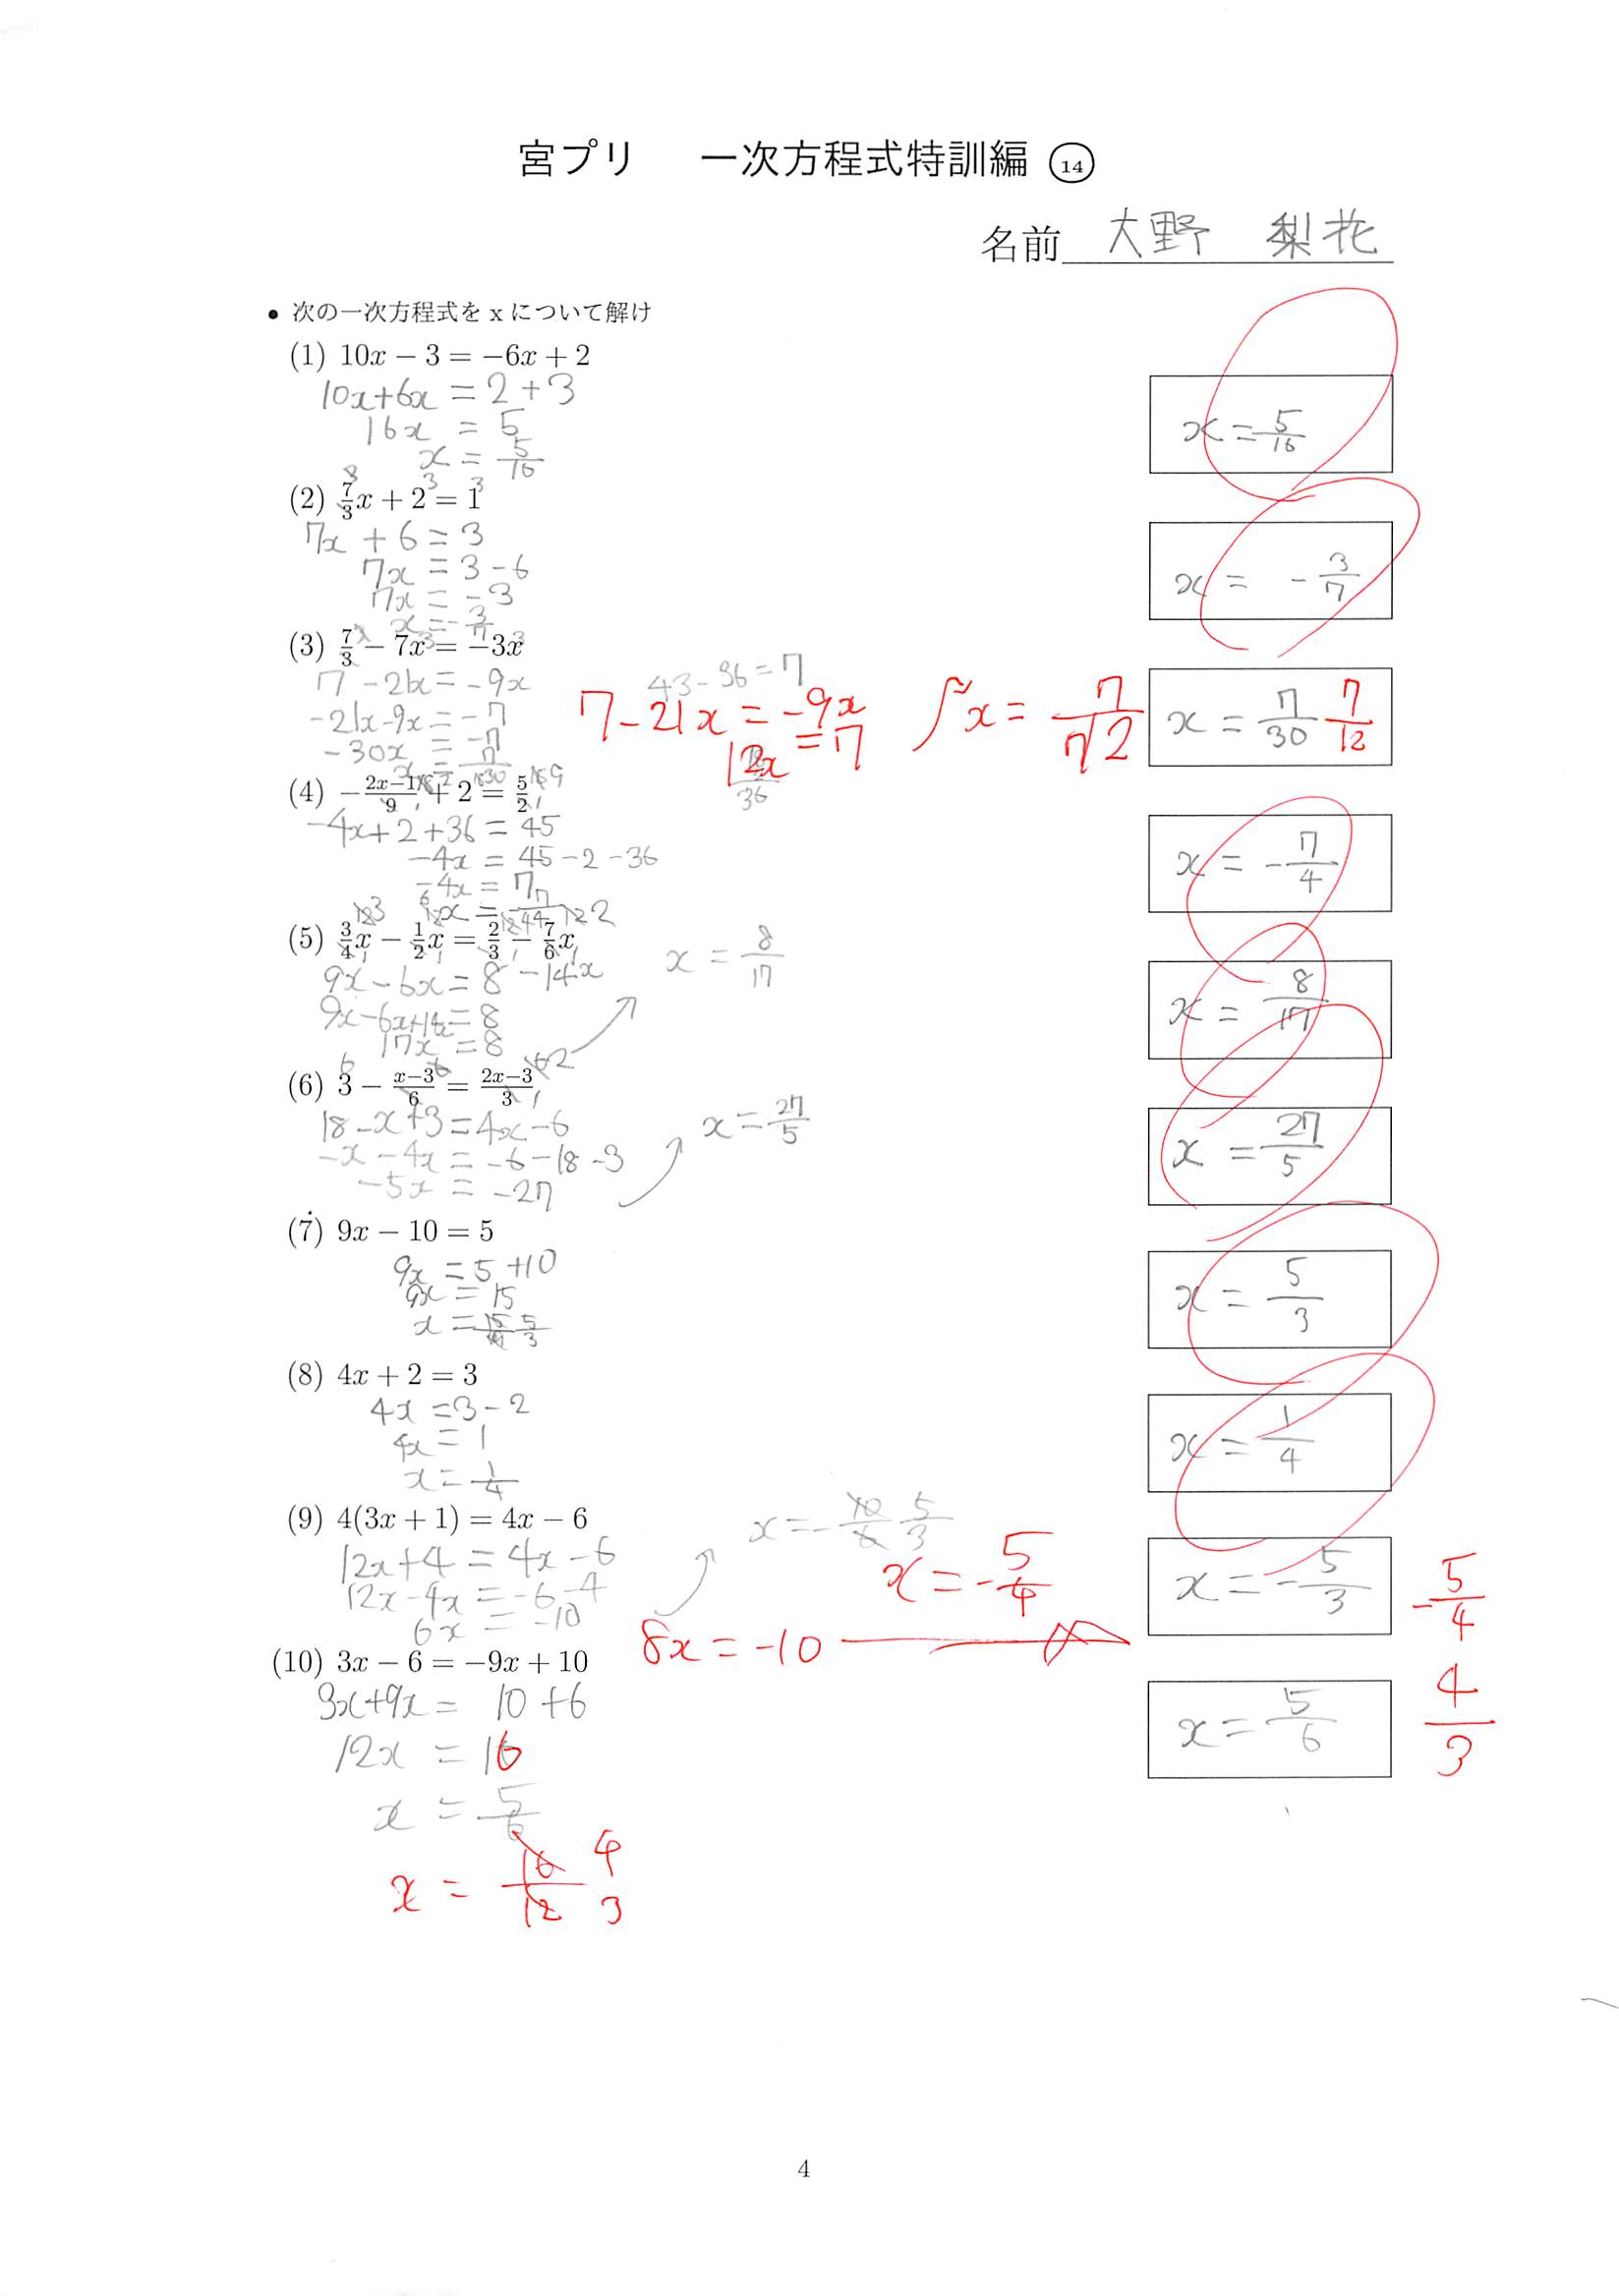 宮プリ 一次方程式特訓編 ⑭
名前 大野 梨花
• 次の一次方程式を x について解け
(1) 10x − 3 = −6x + 2
10x+6x = 2+3
16x = 5
x = 5/16
x = 5/16
(2) 7/3 x + 2 = 1
7x + 6 = 3
7x = 3 - 6
7x = -3
x = -3/7
x = -3/7
(3) 7/3 − 7x = −3x
7 - 21x = -9x
-21x-9x = -7
-30x = -7
x = 7/30
43-36=7
7-21x = -9x
12x = 7
x = 7/12
x = 7/30 7/12
(4) − (2x−1)/9 + 2 = 5/2
-4x+2+36 = 45
-4x = 45-2-36
-4x = 7
x = -7/4
x = -7/4
(5) 3/4 x − 1/2 x = 2/3 − 7/6 x
9x-6x = 8-14x
9x-6x+14x = 8
17x = 8
x = 8/17
x = 8/17
(6) 3 − (x−3)/6 = (2x−3)/3
18-x+3 = 4x-6
-x-4x = -6-18-3
-5x = -27
x = 27/5
x = 27/5
(7) 9x − 10 = 5
9x = 5+10
9x = 15
x = 15/9 5/3
x = 5/3
(8) 4x + 2 = 3
4x = 3-2
4x = 1
x = 1/4
x = 1/4
(9) 4(3x + 1) = 4x − 6
12x+4 = 4x-6
12x-4x = -6-4
6x = -10
x = -10/6 5/3
x = -5/4
8x = -10
x = -5/3
-5/4
(10) 3x − 6 = −9x + 10
3x+9x = 10+6
12x = 16
x = 5/6
x = 16/12 4/3
x = 5/6
4/3
4